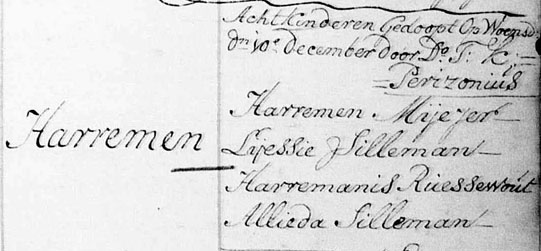 Acht Kinderen Gedoopt Op Woensd:
dn 10e december door Do. T: K. =
= Perizonius
Harremen
Harremen Mijejer
Lijessie Silleman
Harremanis Ruessewout
Allieda Silleman